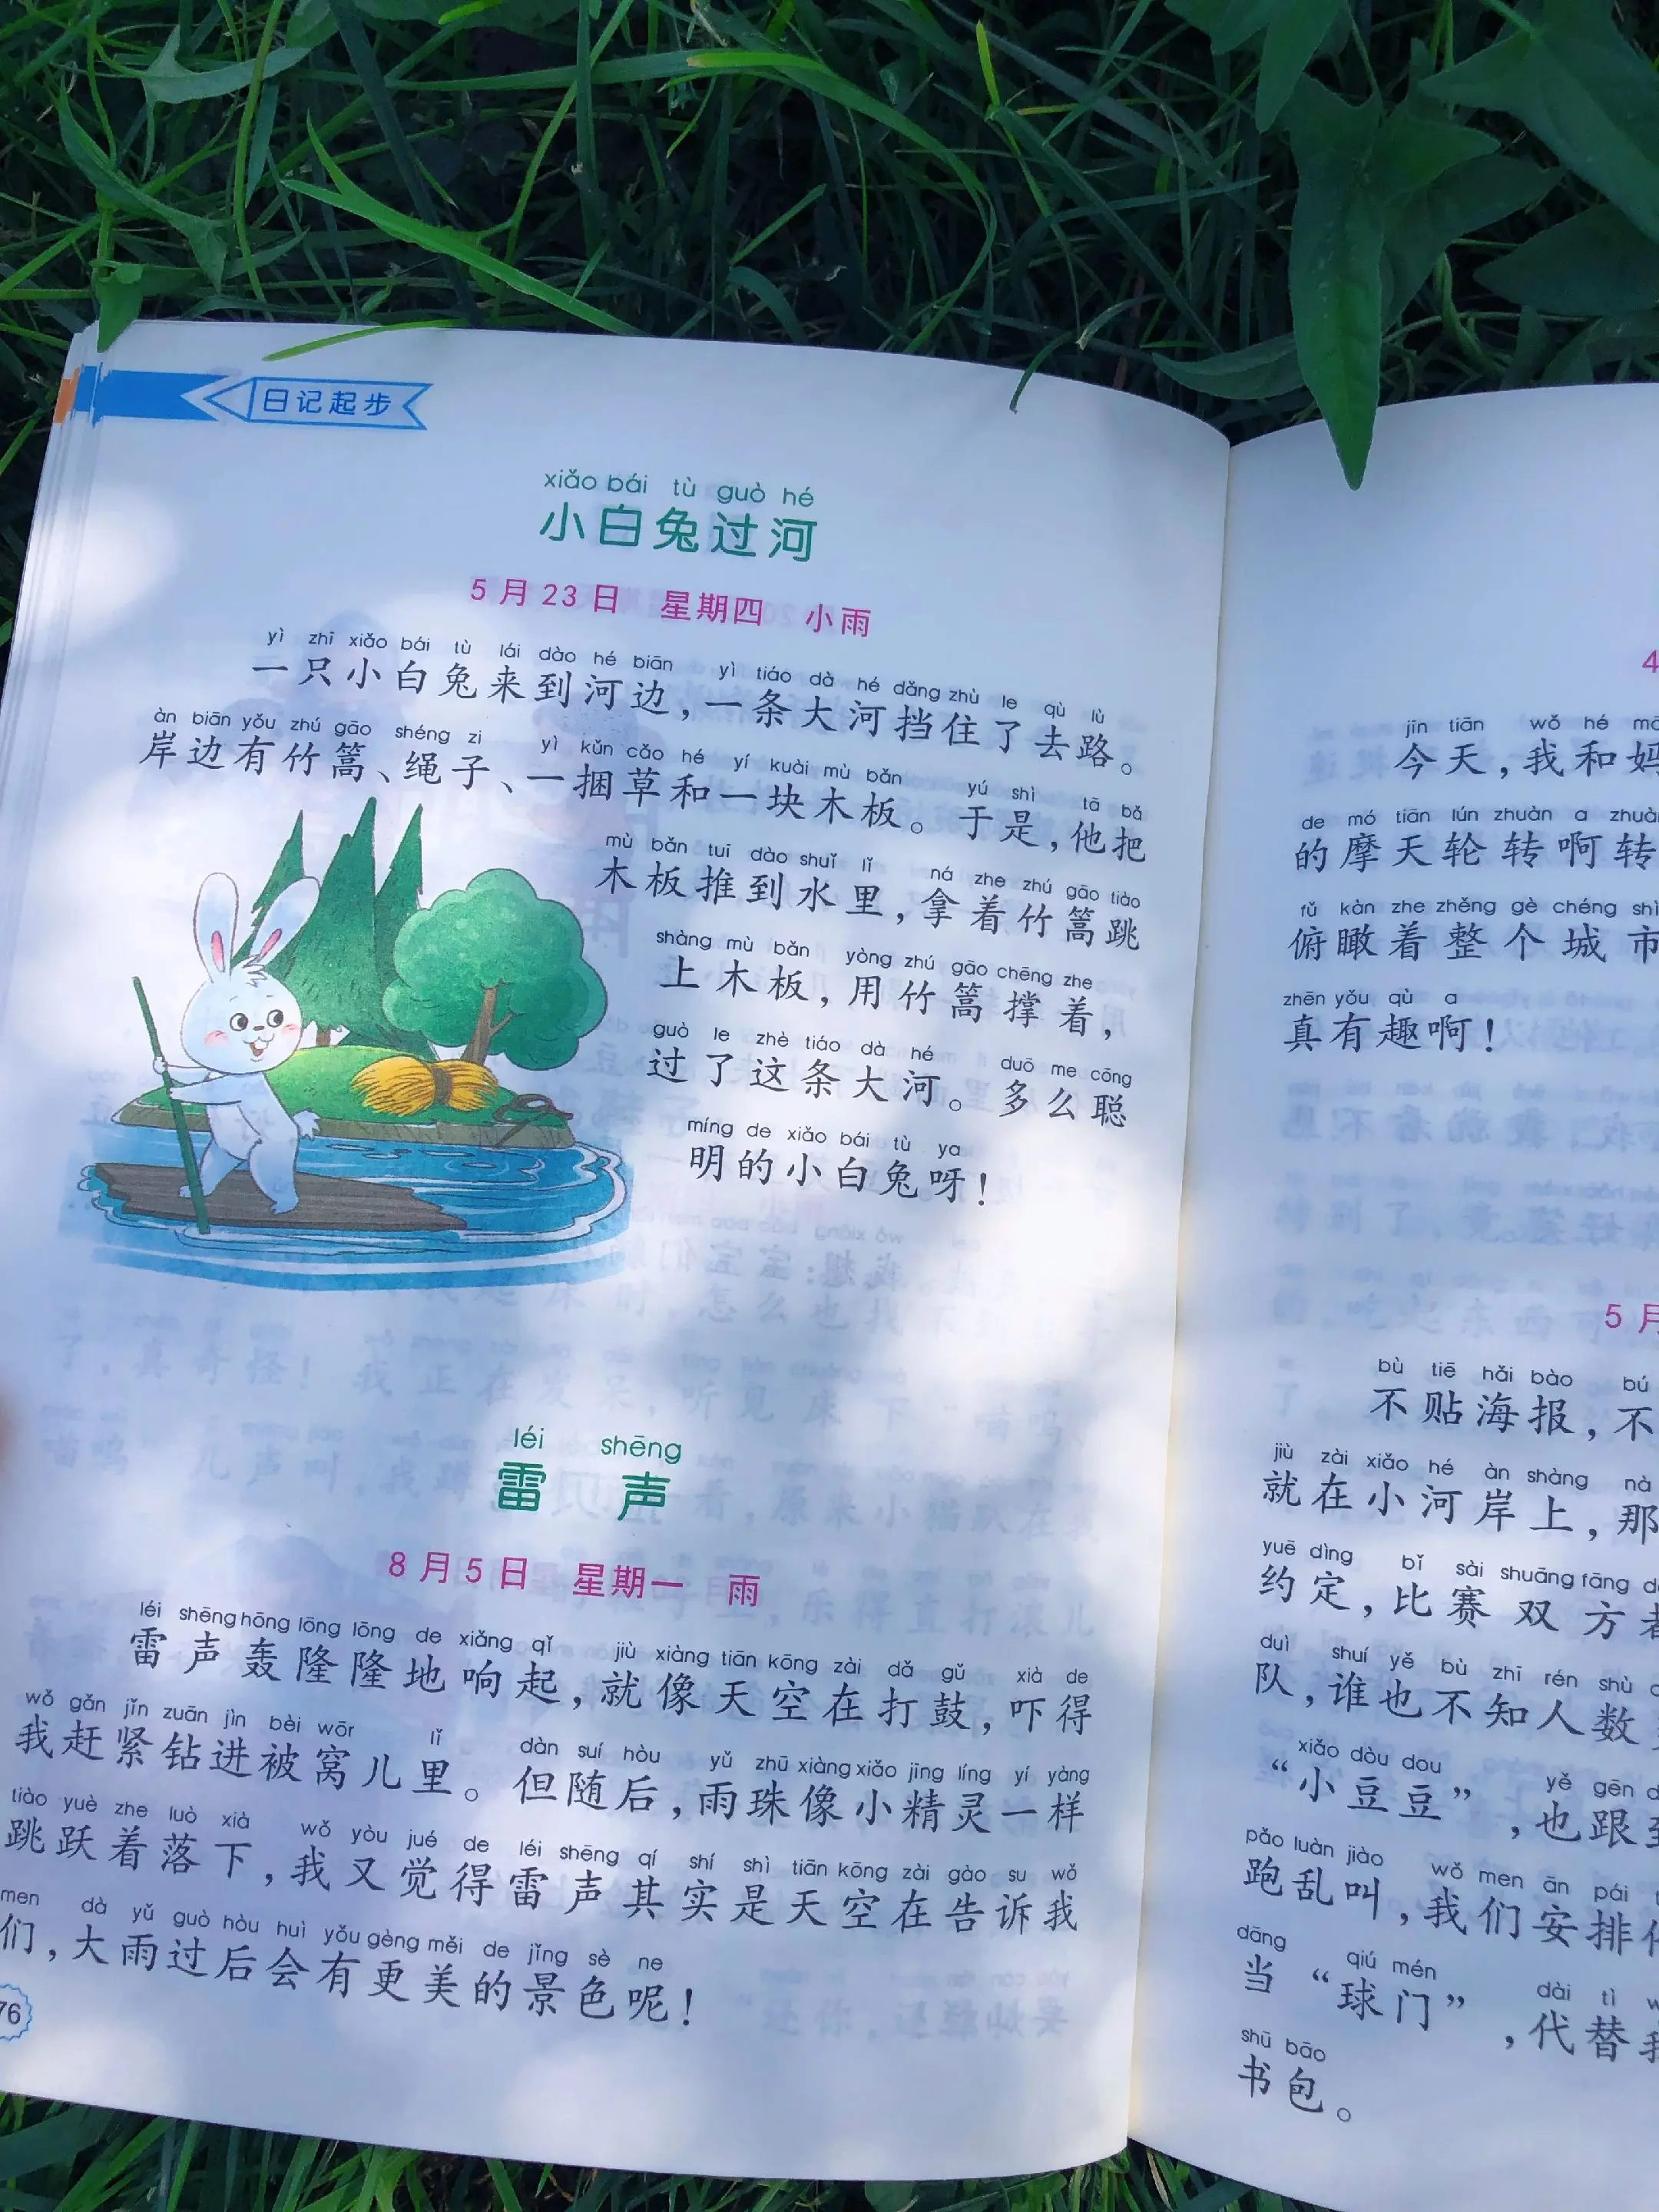 日记起步
xiǎo bái tù guò hé
小白兔过河
5月23日 星期四 小雨
yì zhī xiǎo bái tù lái dào hé biān yì tiáo dà hé dǎng zhù le qù lù
一只小白兔来到河边，一条大河挡住了去路。
àn biān yǒu zhú gāo shéng zi yì kǔn cǎo hé yí kuài mù bǎn yú shì tā bǎ
岸边有竹篙、绳子、一捆草和一块木板。于是，他把
mù bǎn tuī dào shuǐ lǐ ná zhe zhú gāo tiào
木板推到水里，拿着竹篙跳
shàng mù bǎn yòng zhú gāo chēng zhe
上木板，用竹篙撑着，
guò le zhè tiáo dà hé duō me cōng
过了这条大河。多么聪
míng de xiǎo bái tù ya
明的小白兔呀！
léi shēng
雷声
8月5日 星期一 雨
léi shēng hōng lōng lōng de xiǎng qǐ jiù xiàng tiān kōng zài dǎ gǔ xià de
雷声轰隆隆地响起，就像天空在打鼓，吓得
wǒ gǎn jǐn zuān jìn bèi wōr lǐ dàn suí hòu yǔ zhū xiàng xiǎo jīng líng yí yàng
我赶紧钻进被窝儿里。但随后，雨珠像小精灵一样
tiào yuè zhe luò xià wǒ yòu jué de léi shēng qí shí shì tiān kōng zài gào su wǒ
跳跃着落下，我又觉得雷声其实是天空在告诉我
men dà yǔ guò hòu huì yǒu gèng měi de jǐng sè ne
们，大雨过后会有更美的景色呢！
76
4
jīn tiān wǒ hé mā
今天，我和妈
de mó tiān lún zhuàn a zhuàn
的摩天轮转啊转
fǔ kàn zhe zhěng gè chéng shì
俯瞰着整个城市
zhēn yǒu qù a
真有趣啊！
5月
bù tiē hǎi bào bú
不贴海报，不
jiù zài xiǎo hé àn shàng nà
就在小河岸上，那
yuē dìng bǐ sài shuāng fāng
约定，比赛双方
duì shuí yě bù zhī rén shù
队，谁也不知人数
xiǎo dòu dou yě gēn
“小豆豆”，也跟
pǎo luàn jiào wǒ men ān pái
跑乱叫，我们安排
dāng qiú mén dài tì
当“球门”，代替
shū bāo
书包。